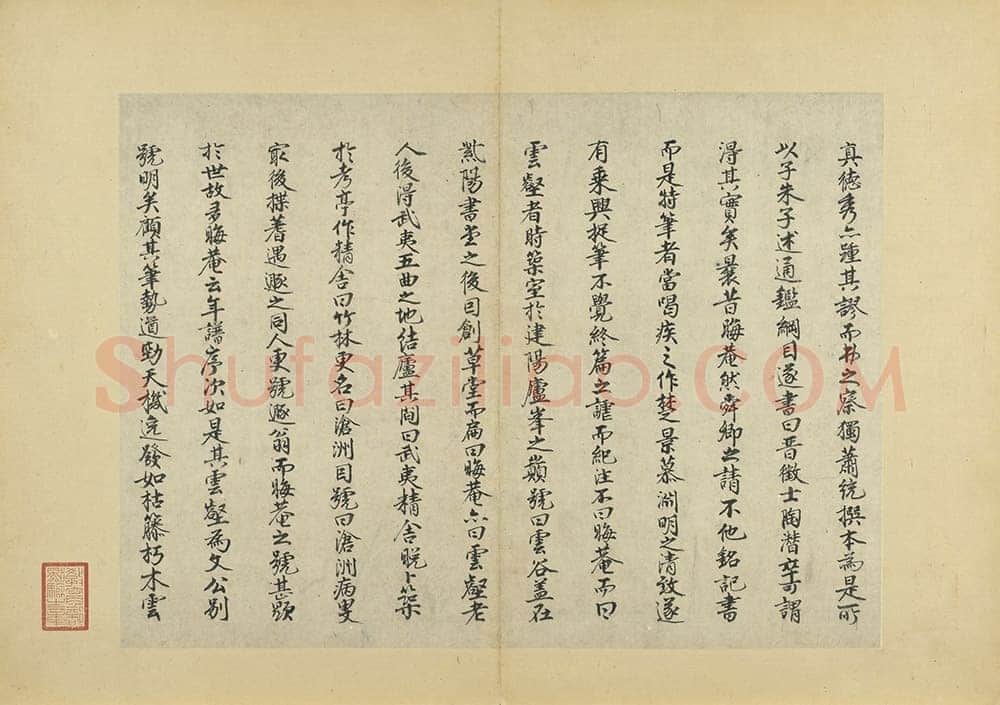 真德秀亦踵其謬而书之寥獨蕭統撰本為是所
以子朱子述通鑑綱目遂書曰晋徵士陶潛卒可謂
得其實矣曩昔晦菴然舜卿之請不他銘記書
而是特筆者當喝疾之作楚景慕淵明之清致遂
有乗興捉筆不覺終篇之謔而紀注不曰晦菴而曰
雲壑者時築室於建陽廬峯之巔號曰雲谷盖在
紫陽書堂之後曰創草堂而扁曰晦菴亦曰雲壑老
人後得武夷五曲之地結廬其間曰武夷精舍晩卜築
於考亭作精舍曰竹林更名曰滄洲因號曰滄洲病叟
㝡後揲蓍遇遯之同人更號遯翁而晦菴之號其顕
於世故多晦菴云年譜序次如是其雲壑為文公别
號明矣顧其筆勢遒勁天機逸發如枯籐朽木雲
Shufaziliao.COM